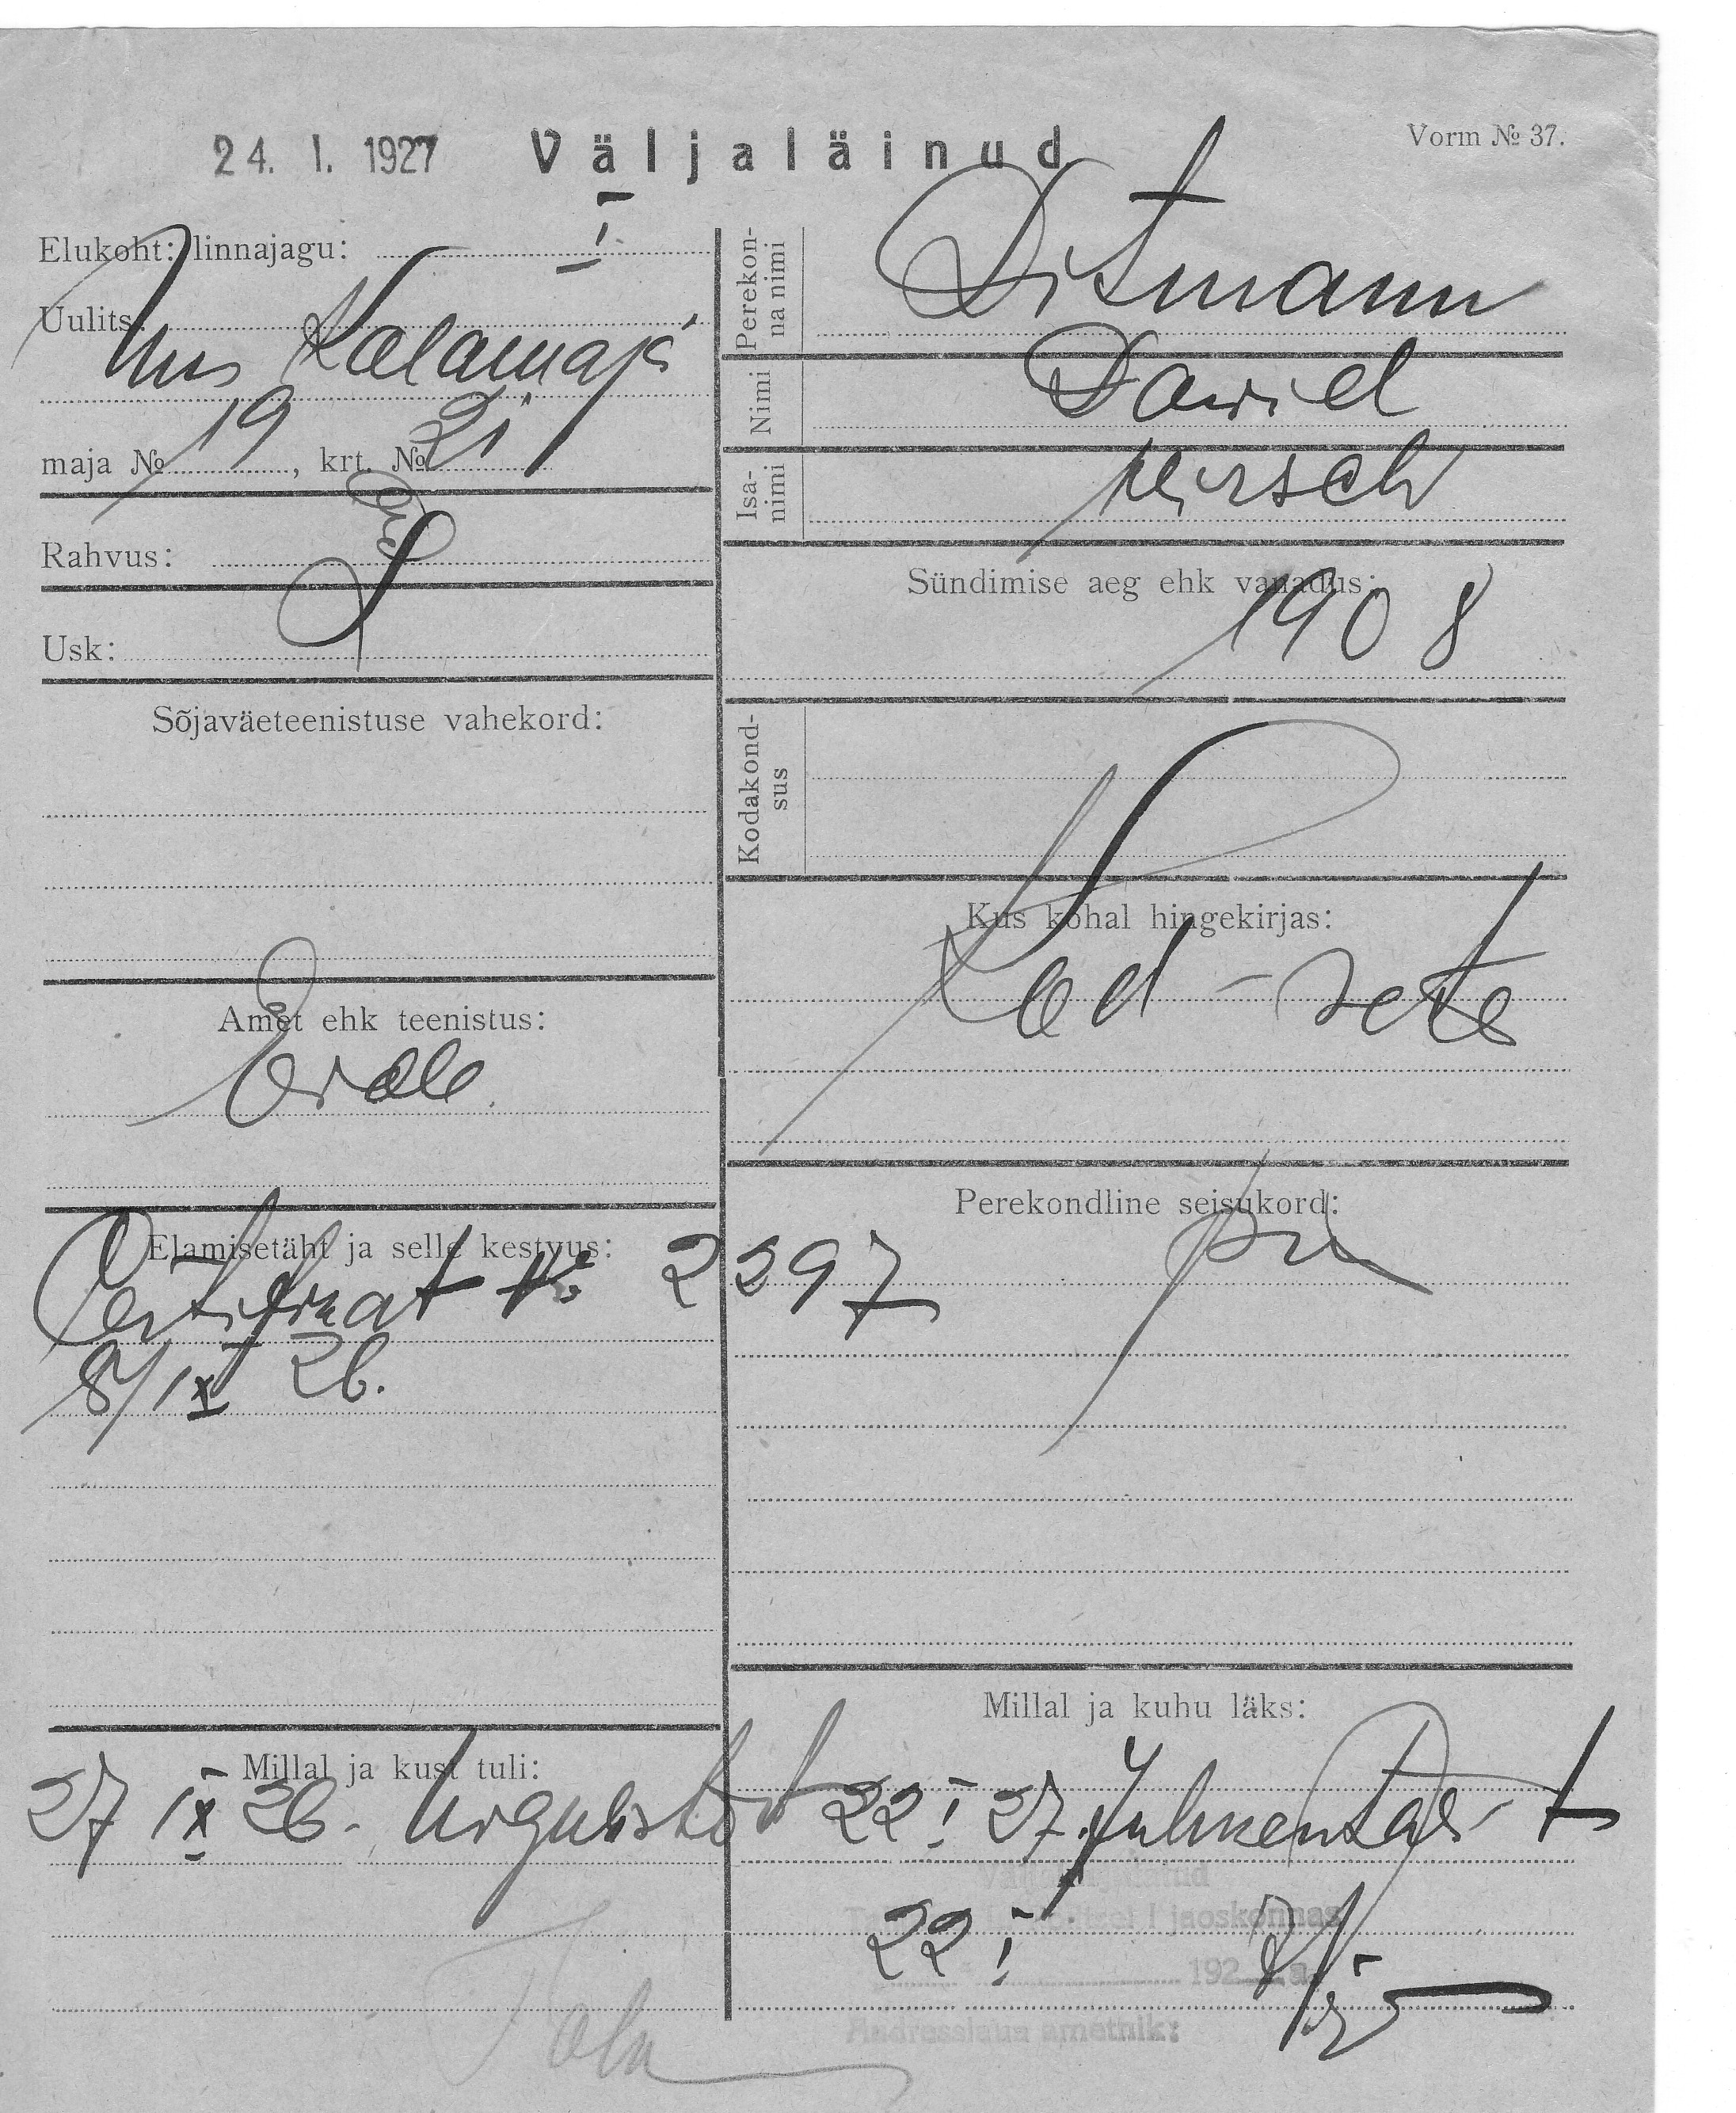 24. I. 1927 Väljaläinud
Vorm № 37.
Elukoht: linnajagu: I
Uulits: Uus Kalamaja
maja № 19, krt. № 21
Rahvus:
Usk:
Sõjaväeteenistuse vahekord:
Amet ehk teenistus:
Elamisetäht ja selle kestvus:
Certifikat № 2297
8/IX 26.
Millal ja kust tuli:
27 IX 26.
Perekon-
na nimi
Ditmann
Nimi
Dawid
Isa-
nimi
Hirsch
Sündimise aeg ehk vanadus:
1908
Kodakond-
sus
Kus kohal hingekirjas:
Perekondline seisukord:
Millal ja kuhu läks:
22 I 27. Juhkentali t
I jaoskonnas
22 I
192 a.
Aadresslaua ametnik: